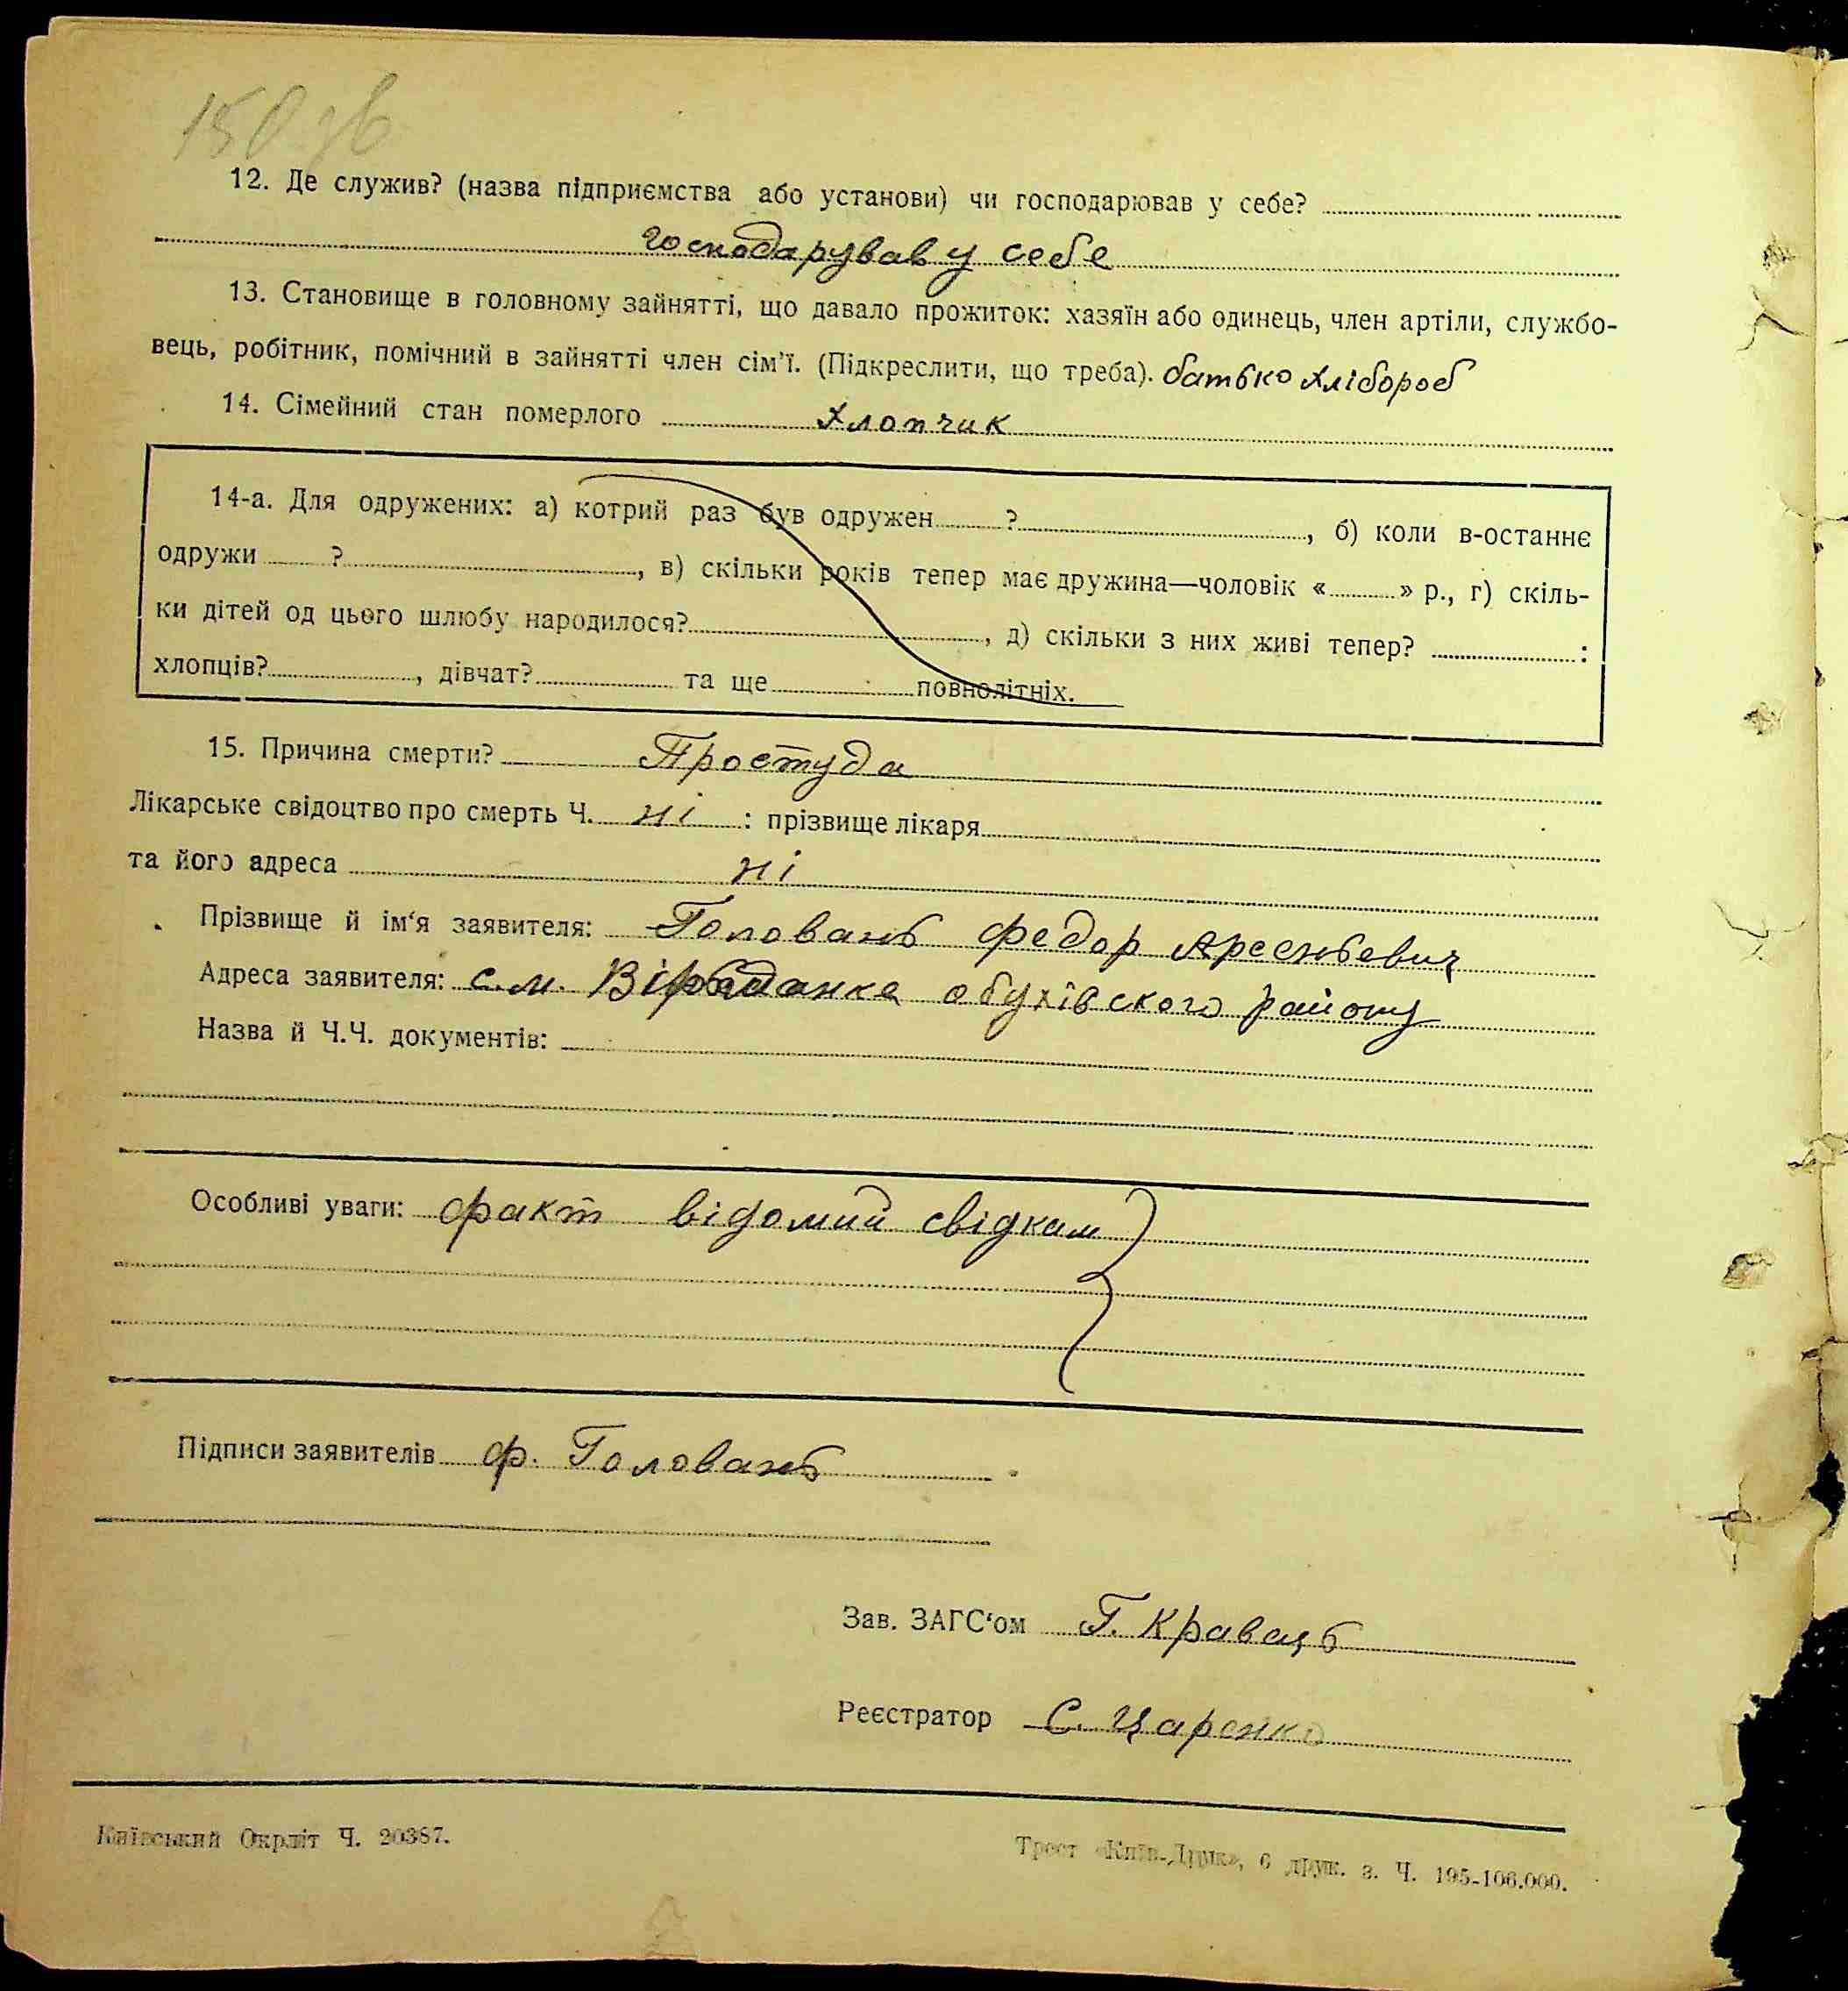 150 зв
12. Де служив? (назва підприємства або установи) чи господарював у себе?
господарував у себе
13. Становище в головному зайнятті, що давало прожиток: хазяїн або одинець, член артіли, службо-
вець, робітник, помічний в зайнятті член сім'ї. (Підкреслити, що треба). батько хлібороб
14. Сімейний стан померлого хлопчик
14-а. Для одружених: а) котрий раз був одружен ? , б) коли в-останнє
одружи ? , в) скільки років тепер має дружина—чоловік « » р., г) скіль-
ки дітей од цього шлюбу народилося? , д) скільки з них живі тепер? :
хлопців? , дівчат? та ще повнолітніх.
15. Причина смерти? Простуда
Лікарське свідоцтво про смерть Ч. ні : прізвище лікаря
та його адреса ні
Прізвище й ім'я заявителя: Головань Федор Арсеньевич
Адреса заявителя: с.м. обухівского району
Назва й Ч.Ч. документів:
Особливі уваги: факт відомий свідкам
Підписи заявителів Ф. Головань
Зав. ЗАГС'ом Г. Кравець
Реєстратор С. Царенко
Київський Окрліт Ч. 20387.
Трест «Київ-Друк», 6 друк. з. Ч. 195-106.000.